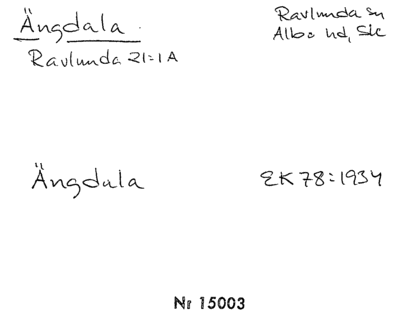 Ängdala.
Ravlunda 21:1A
Ravlunda sn
Albo hd, Sk
Ängdala
EK 78:1934
Nr 15003